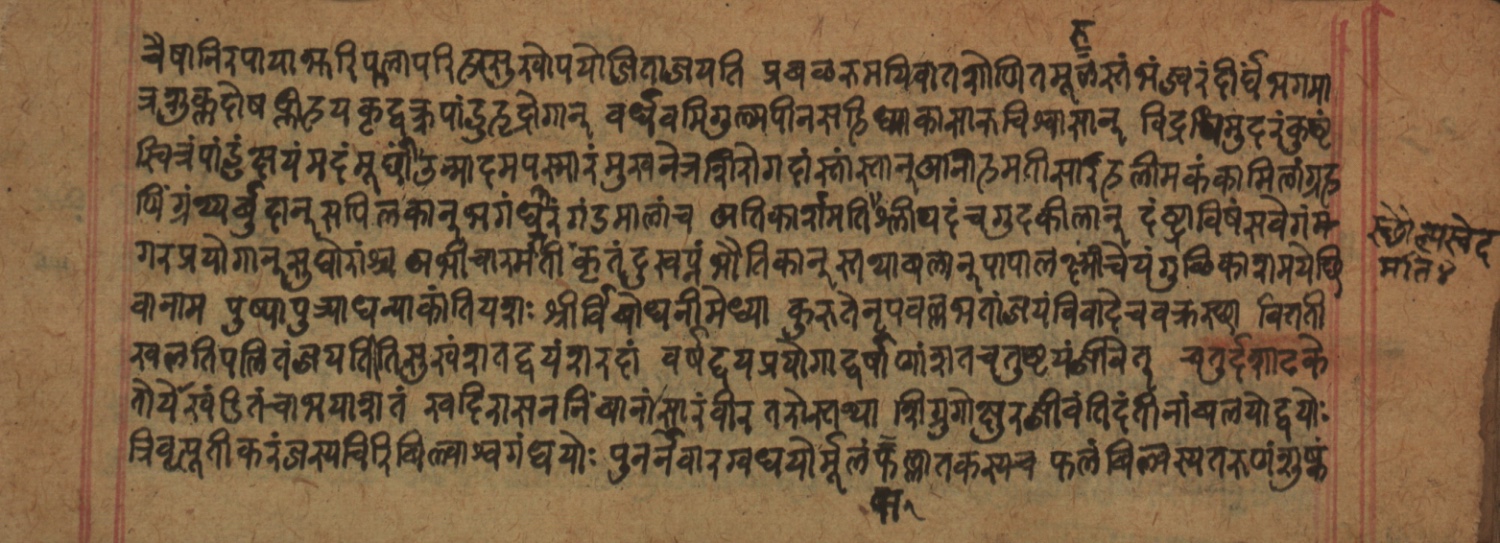 चैषानिरपायाह्मरिपूलापरिहृत्सुखोपयोजिताजयति प्रबळरुमयिवातशोणितमूळस्तंभंज्वरंदीर्घंभगमा
त्रशुक्लदोषप्लीहयकृद्वक्रपांडुहृद्रोगान् वर्ध्मवमिगुल्मपीनसहिध्माकासारुचिश्वासान् विद्रधिमुदरंकुष्टं
श्वित्रंपांडुंक्षयंमदंमूर्छांउन्मादमपस्मारंमुखनेत्रशिरोगदांस्तांस्तान् आनाहमतीसारिंहलीमकंकामिलांग्रह
णिंग्रंथ्यर्बुदान् सपिलकान् भगंधरंगंडमालांच अतिकार्शमतिश्लीपदंचगुदकीलान् दंष्ट्राविषंसवेगंम
गरप्रयोगान् सुघोरांश्च अभीचारमतीकृतंदुस्वप्नंभौतिकान् स्तथाबलान् पापालक्ष्मींचेयंगुळिकाशमयेछि
वानाम पुष्यापुज्याधन्याकांतियशः श्रीर्विबोधनीमेध्या कुरुतेनृपवल्लभतांजयंविवादेचवक्रस्छा विरती
खलतिपलितंजयतितिसुखंशतद्वयंशरदां वर्षद्वयप्रयोगाद्वर्षाणांशतचतुष्टयंजीवेत् चतुर्दशाटके
तोयेखंडितंचाभयाशतं खदिरासननिंबानांसारंवीरतरोस्तथा शिग्रुगोक्षुरजीवंतिदंतीनांबलयोद्वयोः
त्रिवृत्पूतीकरंजस्यचिरिबिल्वाश्वगंधयोः पुनर्नवारग्वधयोर्मूलंफंल्लातकस्यच फलंबिल्वस्यतरुणंशुष्क